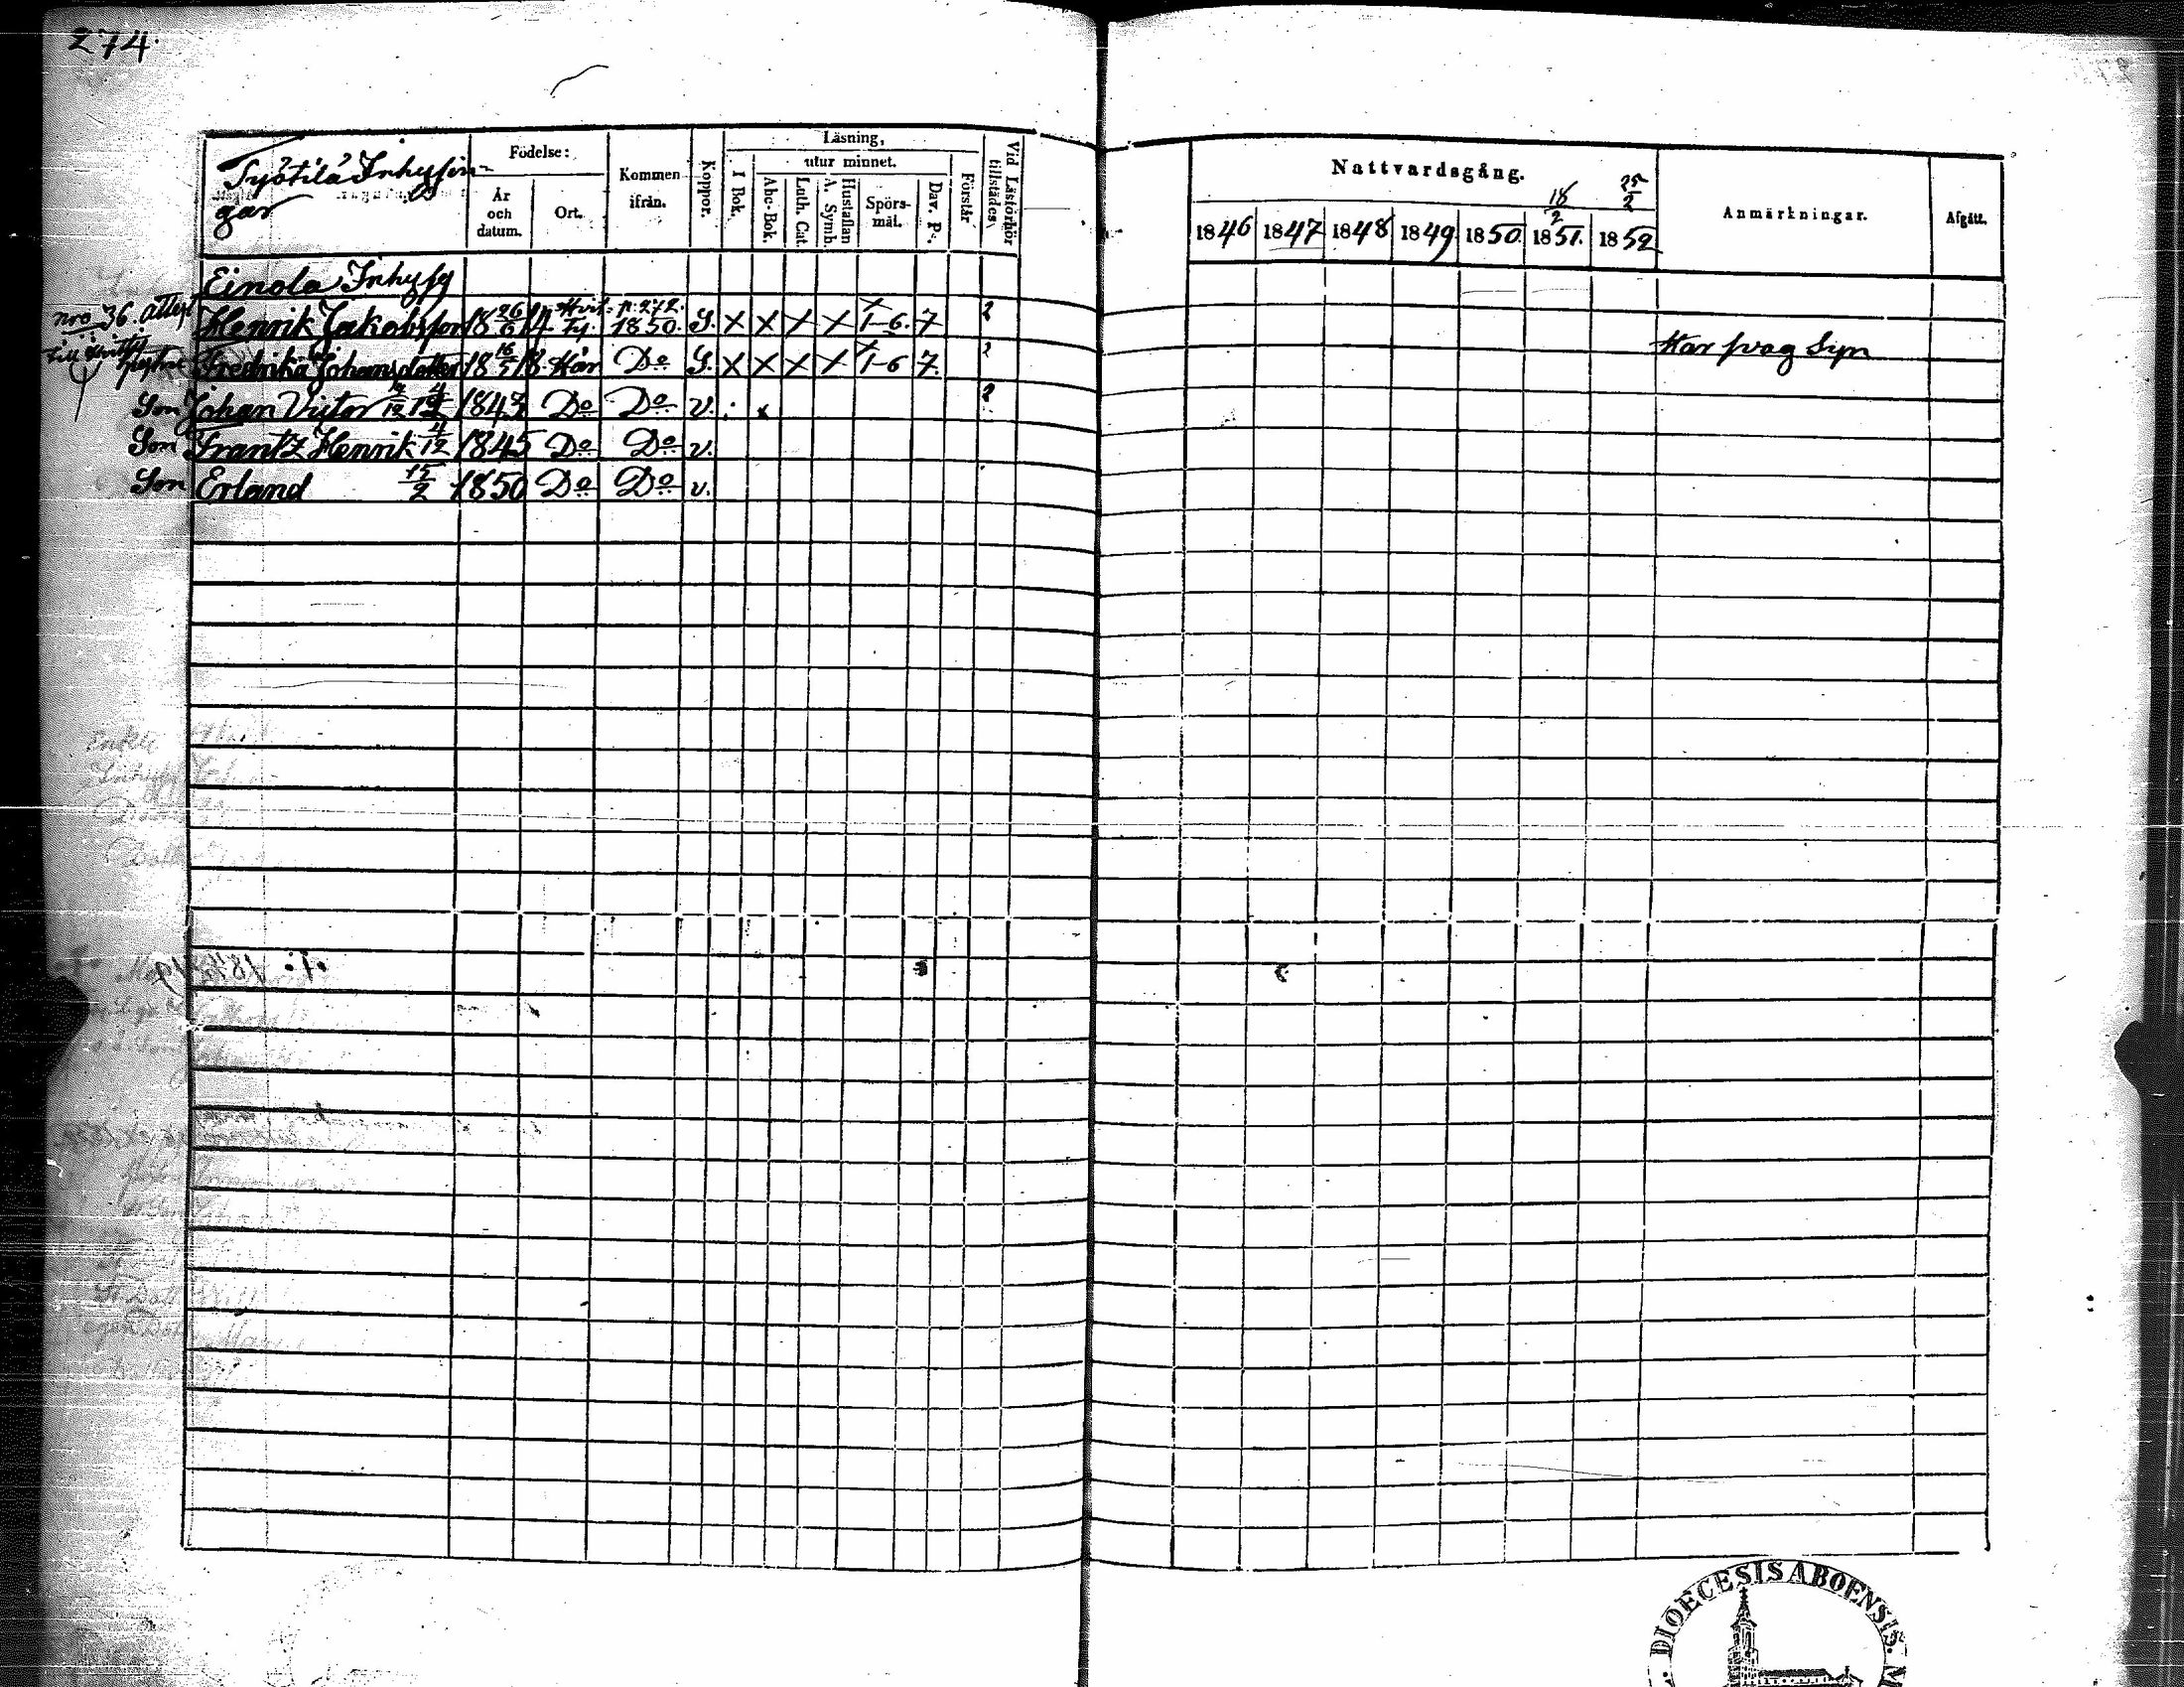 274.
Födelse:
Läsning,
utur minnet.
Kommen ifrån.
Koppor.
År och datum.
Ort.
I Bok.
Abc-Bok.
Luth. Cat.
A. Symb.
Hustaflan
Spörsmål.
Dav. Ps.
Förstår
Vid Läsförhör tillstädes
Nattvardsgång.
18/2 25/2
1846 1847 1848 1849 1850 1851. 1852
Anmärkningar.
Afgått.
Työtilä Inhysin-
gar
Einola Inhysg
nro 36. attest Henrik Jakobsson 18 26/6 14 Ty. p. 272. 1850. S. X X X X X 1-6. 7 2
Fredrika Johansdotter 18 16/5 18 Har Do S. X X X X X 1-6 7. 2 Har svag Syn
Son Johan Victor 1847 Do Do v. 2
Son Frantz Henrik 4/12 1845 Do Do v.
Son Erland 15/2 1850 Do Do v.
DIOECESIS ABOENSIS. M